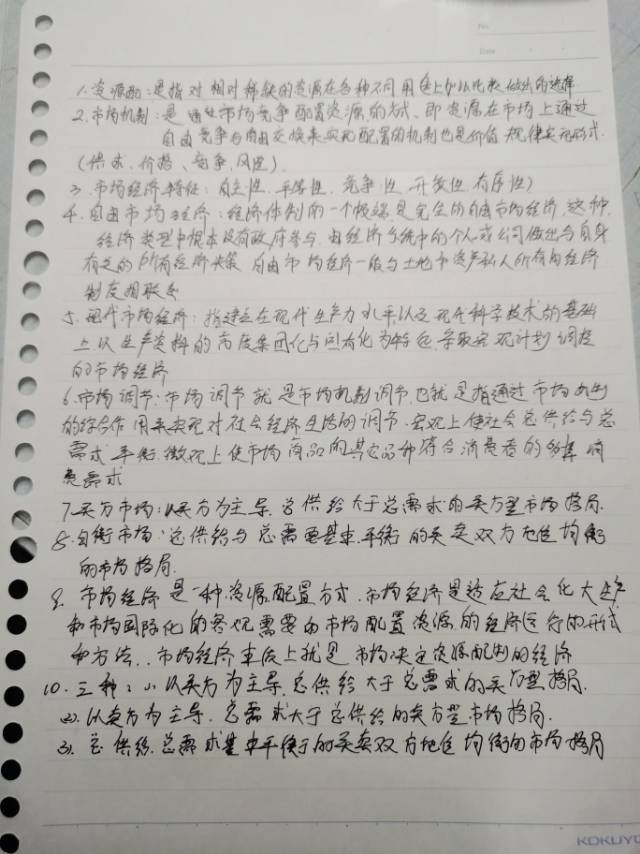 No.
Date
1.资源配:是指对相对稀缺的资源在各种不同用途上加以比较做出的选择
2.市场机制:是通过市场竞争配置资源的方式,即资源在市场上通过
自由竞争与自由交换来实现配置的机制也是价值规律实现形式.
(供求、价格、竞争、风险).
3.市场经济特征:自主性、平等性、竞争性、开放性、有序性)
4.自由市场经济:经济体制的一个极端是完全的自由市场经济,这种
经济类型中根本没有政府参与,由经济系统中的个人或公司做出与自身
有关的所有经济决策,自由市场经济一般与土地市资产私人所有的经济
制度相联系
5.现代市场经济:指建立在现代生产力水平以及现代科学技术的基础
上,以生产资料的高度集团化与国有化为特征,采取宏观计划调控
的市场经济
6.市场调节:市场调节就是市场机制调节,也就是指通过市场机制
的综合作用来实现对社会经济生活的调节.宏观上使社会总供给与总
需求平衡,微观上使市场商品的其它品种符合消费者的消
费需求
7.买方市场:以买方为主导.总供给大于总需求的买方型市场格局.
8.均衡市场:总供给与总需要基本平衡的买卖双方地位均衡
的市场格局.
9.市场经济是一种资源配置方式,市场经济是适应社会化大生产
和市场国际化的客观需要由市场配置资源的经济运行的形式
和方法,.市场经济本质上就是市场决定资源配制的经济
10.三种:(1)以买方为主导.总供给大于总需求的买方型格局.
(2).以卖方为主导.总需求大于总供给的卖方型市场格局.
(3).总供给、总需求基本平衡于的买卖双方地位均衡的市场格局
KOKUYO